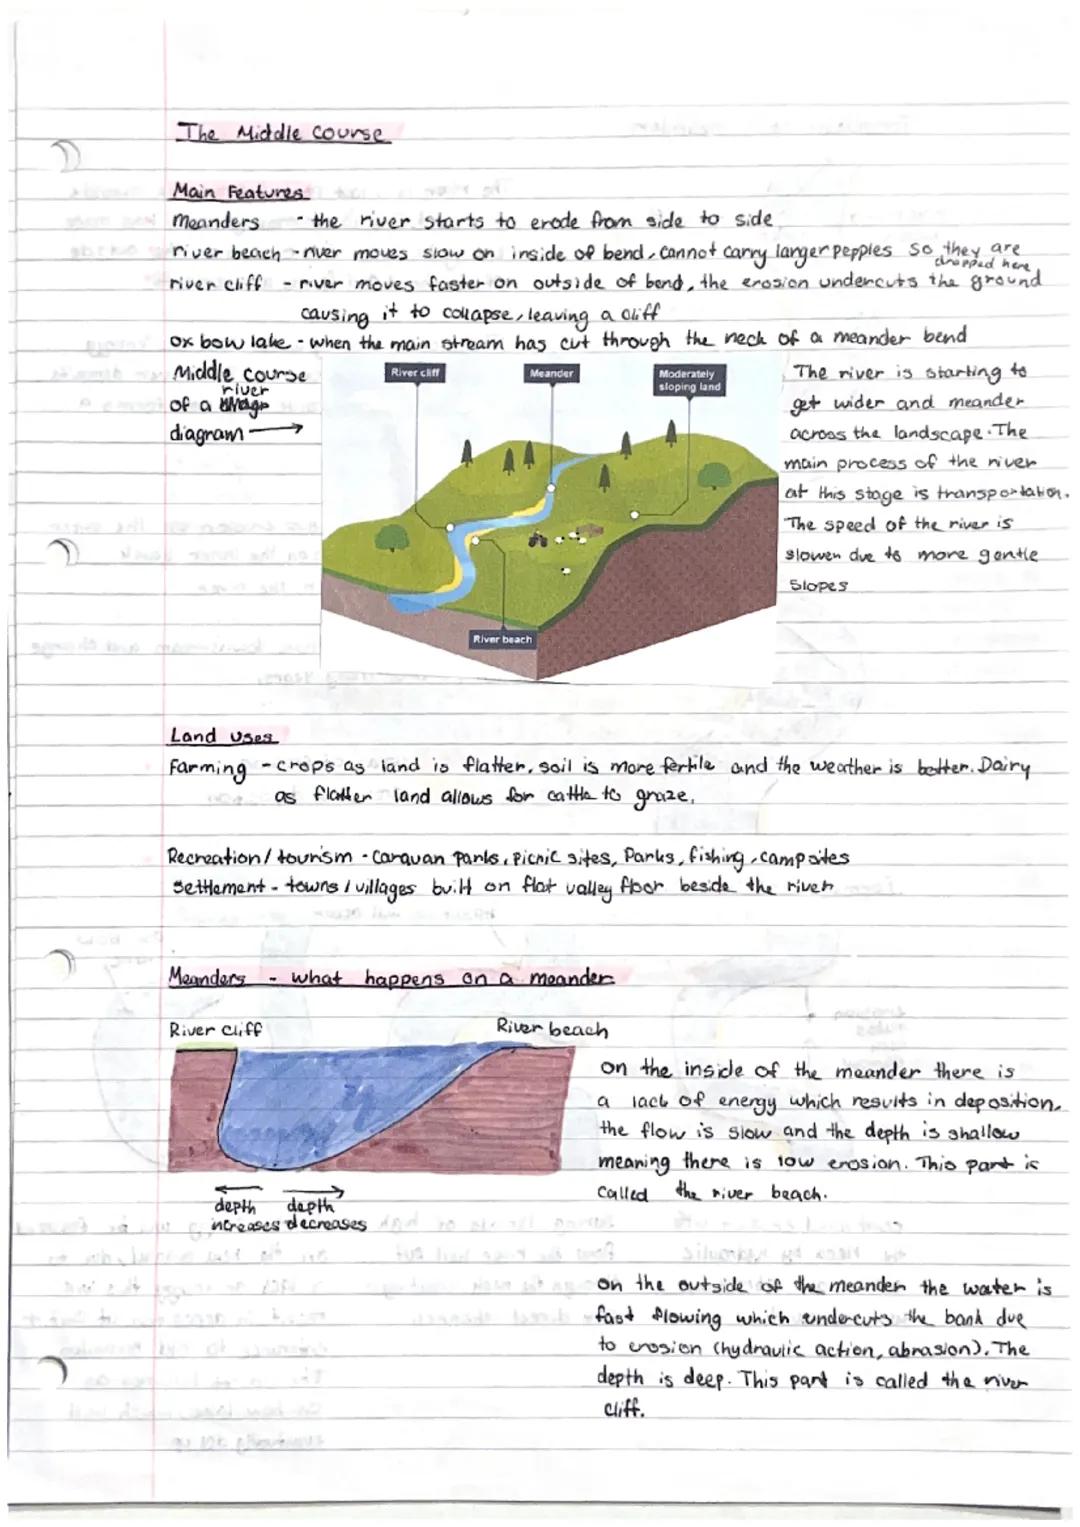 The Middle Course
Main Features
Meanders - the river starts to erode from side to side
river beach - river moves slow on inside of bend, cannot carry larger pepples so they are dropped here
river cliff - river moves faster on outside of bend, the erosion undercuts the ground
causing it to collapse, leaving a cliff
ox bow lake - when the main stream has cut through the neck of a meander bend
Middle course
of a river
diagram
River cliff
Meander
Moderately
sloping land
River beach
The river is starting to
get wider and meander
across the landscape. The
main process of the river
at this stage is transportation.
The speed of the river is
slower due to more gentle
slopes
Land uses
Farming - crops as land is flatter, soil is more fertile and the weather is better. Dairy
as flatter land allows for cattle to graze.
Recreation/tourism - Caravan parks, picnic sites, Parks, fishing, campsites
Settlement - towns/villages built on flat valley floor beside the river
Meanders - what happens on a meander
River cliff
River beach
depth increases
depth decreases
on the inside of the meander there is
a lack of energy which results in deposition.
the flow is slow and the depth is shallow
meaning there is low erosion. This part is
called the river beach.
on the outside of the meander the water is
fast flowing which undercuts the bank due
to erosion (hydraulic action, abrasion). The
depth is deep. This part is called the river
cliff.